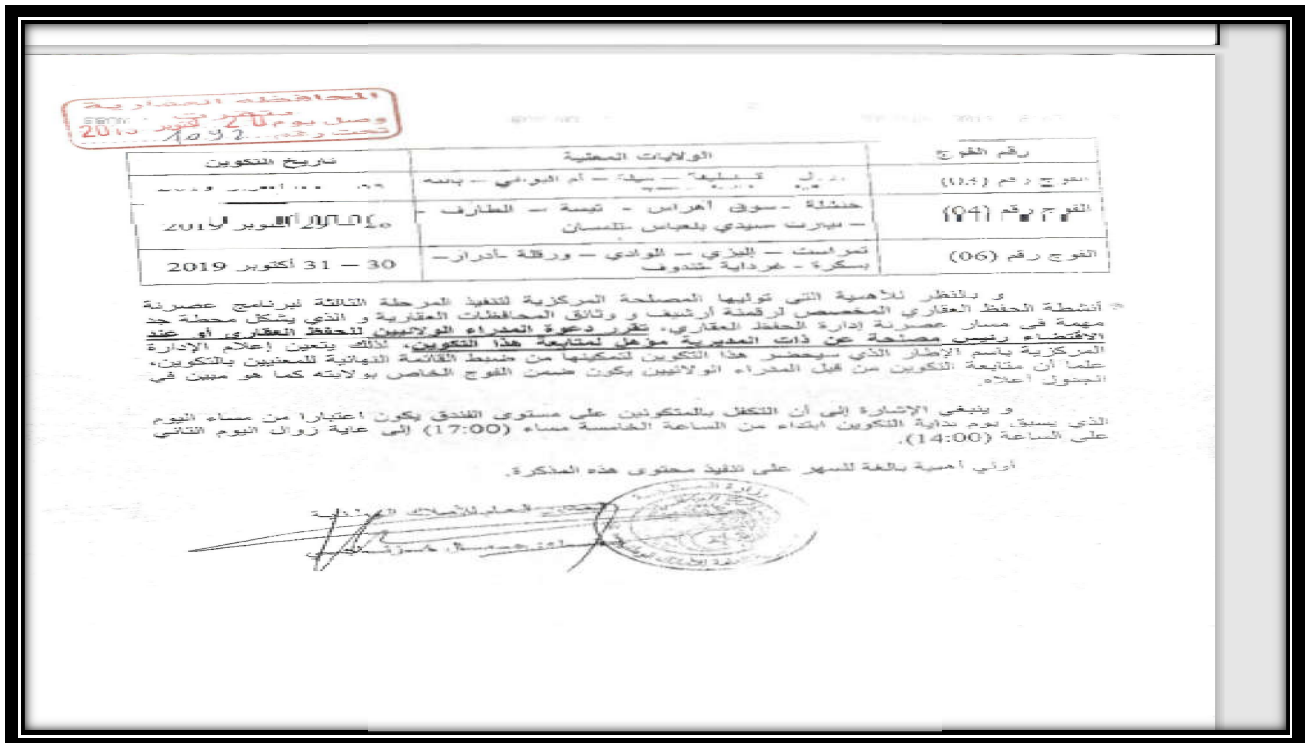 المحافظة العقارية
وصل يوم 20
تحت رقم 1092
رقم الفوج الولايات المعنية تاريخ التكوين
الفوج رقم – ميلة – أم البواقي – باتنة
الفوج رقم (04) خنشلة - سوق أهراس - تبسة – الطارف - أكتوبر 2019
– تيارت سيدي بلعباس - تلمسان
الفوج رقم (06) تمراست – إليزي – الوادي – ورقلة - أدرار – 30 – 31 أكتوبر 2019
بسكرة - غرداية تندوف
و بالنظر للأهمية التي توليها المصلحة المركزية لتنفيذ المرحلة الثالثة لبرنامج عصرنة
أنشطة الحفظ العقاري المخصص لرقمنة أرشيف و وثائق المحافظات العقارية و الذي يشكل محطة جد
مهمة في مسار عصرنة إدارة الحفظ العقاري، تقرر دعوة المدراء الولائيين للحفظ العقاري أو عند
الاقتضاء رئيس مصلحة عن ذات المديرية مؤهل لمتابعة هذا التكوين، لذلك يتعين إعلام الإدارة
المركزية باسم الإطار الذي سيحضر هذا التكوين لتمكينها من ضبط القائمة النهائية للمعنيين بالتكوين،
علما أن متابعة التكوين من قبل المدراء الولائيين يكون ضمن الفوج الخاص بولايته كما هو مبين في
الجدول أعلاه.
و ينبغي الإشارة إلى أن التكفل بالمتكونين على مستوى الفندق يكون اعتبارا من مساء اليوم
الذي يسبق يوم بداية التكوين ابتداء من الساعة الخامسة مساء (17:00) إلى غاية زوال اليوم الثاني
على الساعة (14:00).
أولي أهمية بالغة للسهر على تنفيذ محتوى هذه المذكرة.